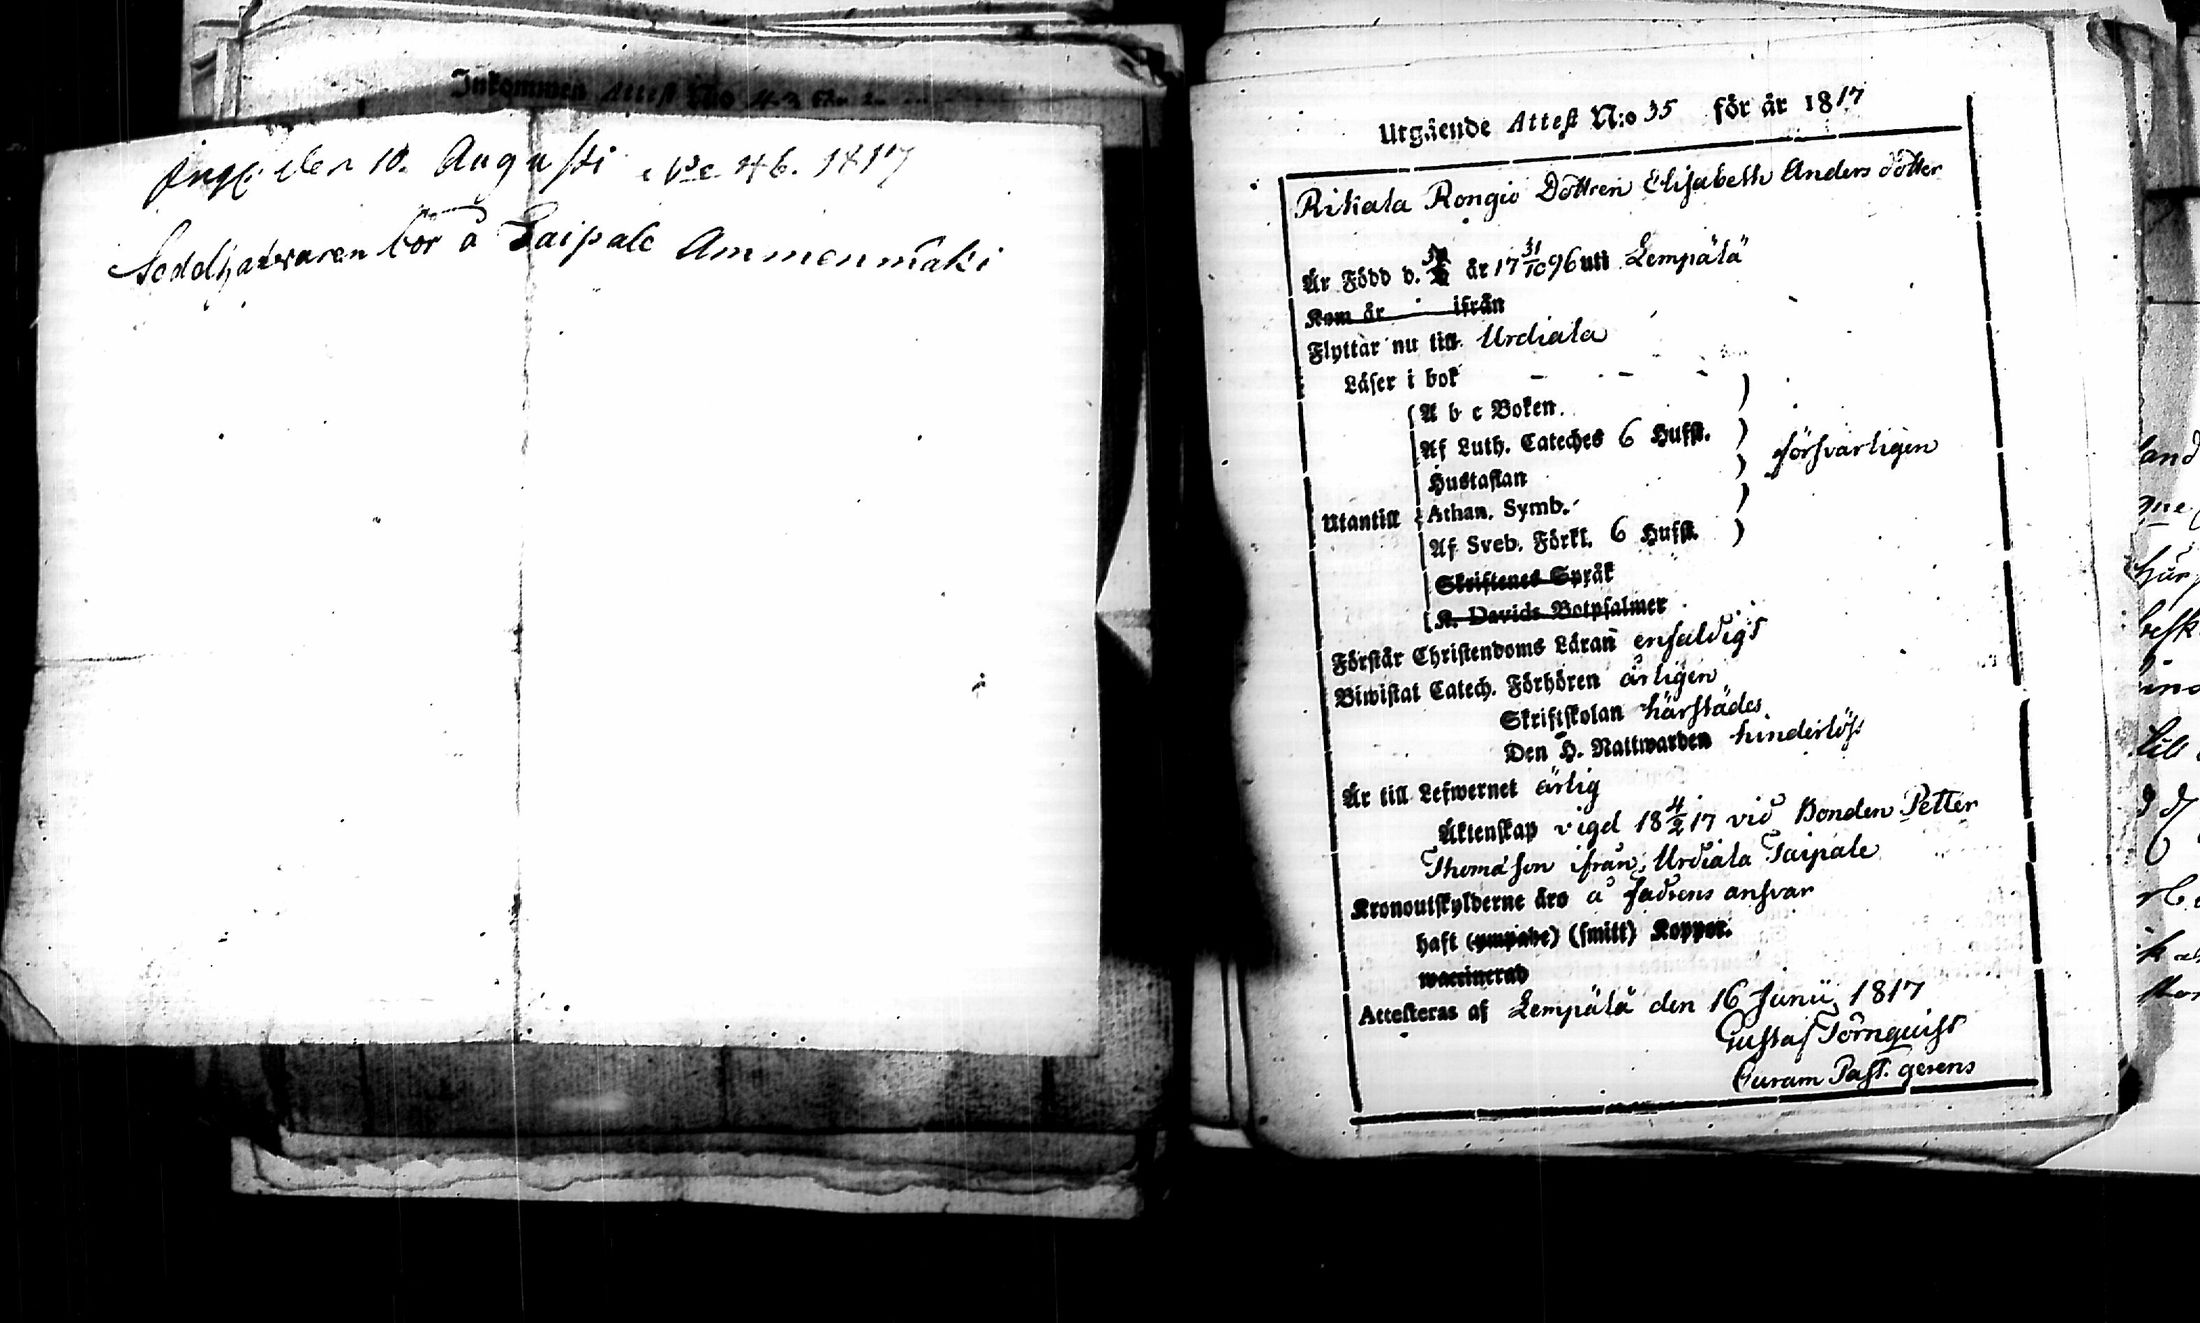 Inkommen Attest No 43 för
Ingf. den 10. Augusti No 46. 1817
Seddhafwaren bor å Taipale Ammenmäki
Utgående Attest N:o 35 för år 1817
Rikala Rongio Dottren Elisabeth Anders dotter
Är Född d. år 17 31/10 96 uti Lempälä
Kom år ifrån
Flyttar nu till Urdiala
Läser i bok
A b c Boken.
Af Luth. Cateches 6 Hufst.
försvarligen
Hustaflan
Utantill Athan. Symb.
Af Sveb. Förkl. 6 Hufst.
Skriftenes Språk
K. Davids Botpsalmer
Förstår Christendoms Läran enfaldigt
Biwistat Catech. Förhören årligen
Skriftskolan härstädes
Den H. Nattwarden hinderlöst
Är till Lefwernet ärlig
Äktenskap vigd 18 4/2 17 vid Bonden Petter
Thomasson ifrån Urdiala Taipale
Kronoutskylderne äro å fadrens ansvar
haft (ympade) (smitt) Koppor.
waccinerad
Attesteras af Lempälä den 16 Junii 1817
Gustaf Törnquist
Curam Past. gerens